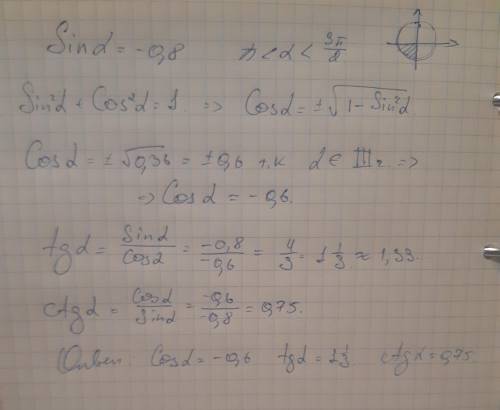 Sinα = -0,8   π < α < 3π/2
Sin²α + Cos²α = 1 => Cosα = ±√(1 - Sin²α)
Cosα = ±√0,36 = ±0,6 т.к α ∈ III ч =>
=> Cosα = -0,6.
tgα = Sinα/Cosα = -0,8/-0,6 = 4/3 = 1 1/3 ≈ 1,33.
ctgα = Cosα/Sinα = -0,6/-0,8 = 0,75.
Ответ Cosα = -0,6 tgα = 1 1/3 ctgα = 0,75